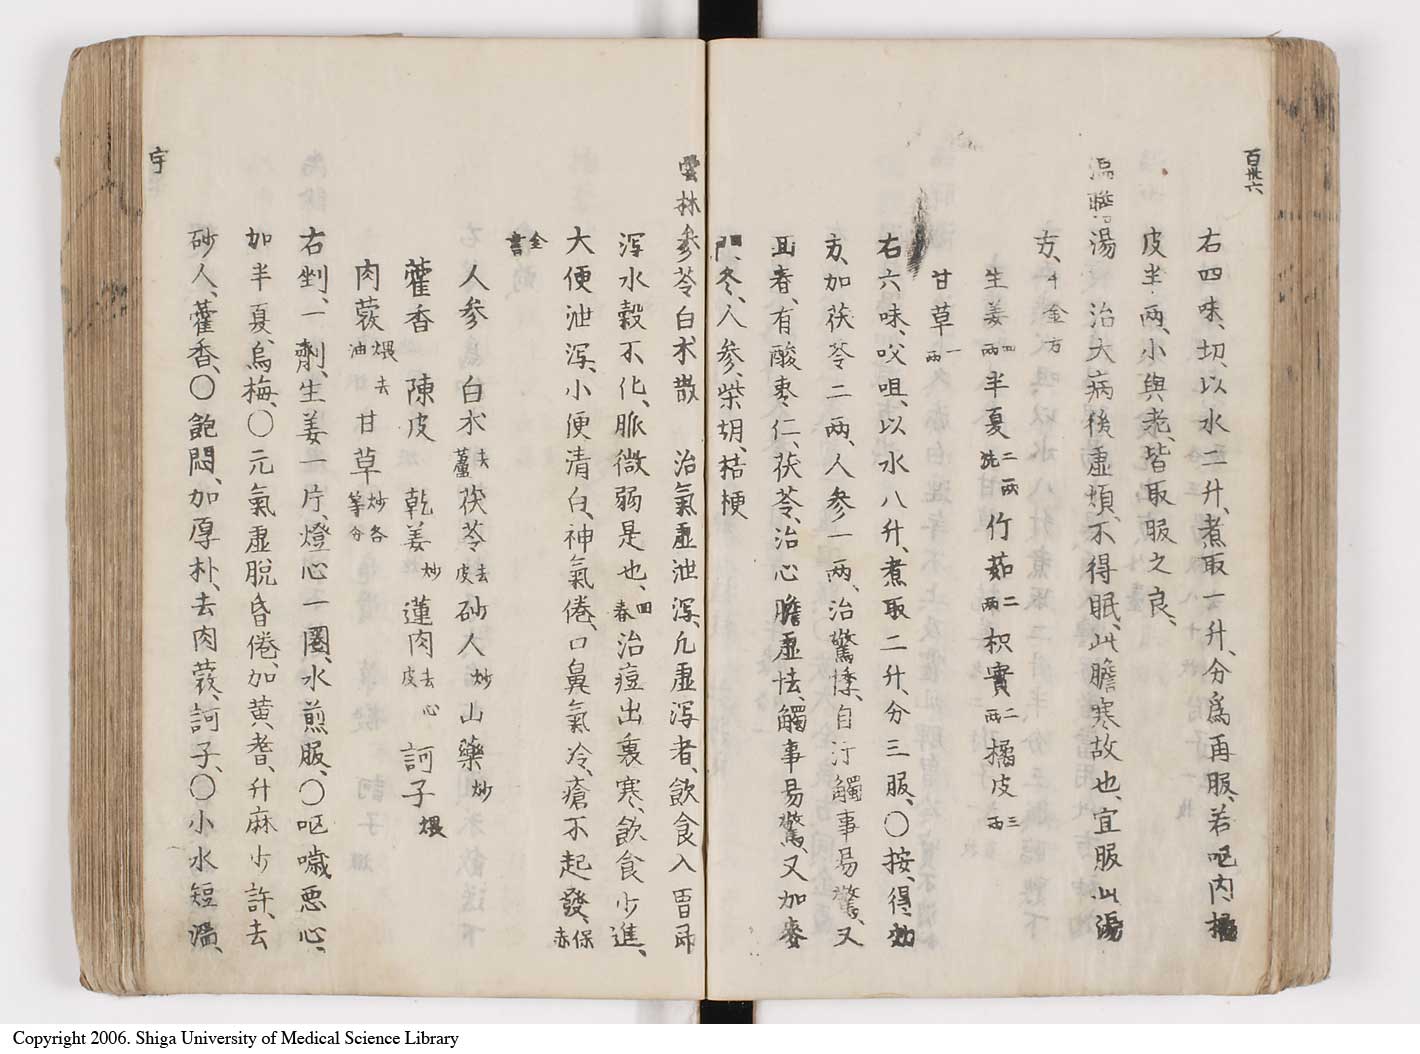 百卅六
右四味、切、以水二升、煮取一升、分爲再服、若呕、内橘
皮半両、小與老、皆取服之良、
温膽湯 治大病後虚煩、不得眠、此膽寒故也、宜服此湯
方、千金方
生姜四両 半夏二両洗 竹茹二両 枳實二両 橘皮三両
甘草一両
右六味、㕮咀、以水八升、煮取二升、分三服、〇按、得効
方、加茯苓二両、人参一両、治驚悸、自汗、觸事易驚、又
回春、有酸枣仁、茯苓、治心膽虚怯、觸事易驚、又加麥
門冬、人参、柴胡、桔梗
雲林参苓白朮散 治氣虚泄瀉、凡虚瀉者、飲食入胃即
瀉水穀不化、脈微弱是也、回春 治痘出裏寒、飲食少進、
大便泄瀉、小便清白、神氣倦、口鼻氣冷、瘡不起發、保赤
全書
人参 白朮去蘆 茯苓去皮 砂人炒 山藥炒
藿香 陳皮 乾姜炒 蓮肉去心皮 訶子煨
肉蔲煨去油 甘草炒各等分
右剉、一劑、生姜一片、燈心一圏、水煎服、〇呕噦悪心、
加半夏、烏梅、〇元氣虚脱昏倦、加黄耆、升麻少許、去
砂人、藿香、〇飽悶、加厚朴、去肉蔲、訶子、〇小水短澁、
宇